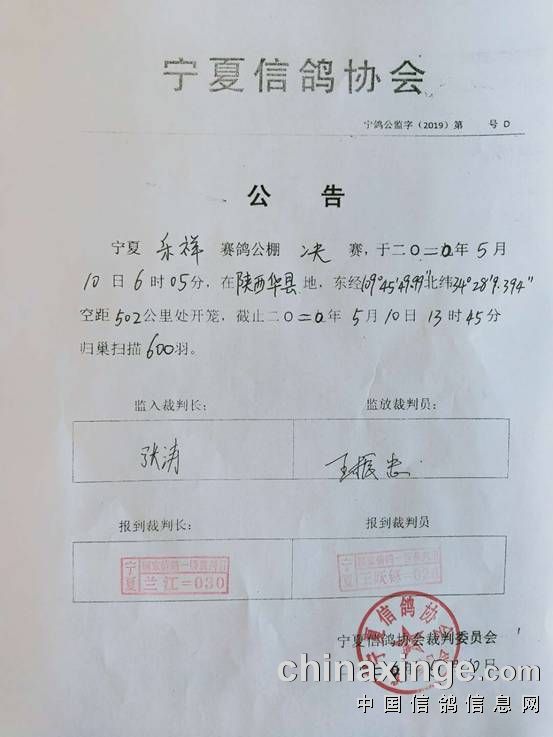 宁夏信鸽协会
宁鸽公监字（2019）第 号 D
公 告
宁夏 乐祥 赛鸽公棚 决 赛，于二〇二〇年 5 月
10 日 6 时 05 分，在陕西华县 地，东经109°45'49.99"北纬34°28'9.394"
空距 502 公里处开笼，截止二〇二〇年 5 月 10 日 13 时 45 分
归巢扫描 600 羽。
监入裁判长： 监放裁判员：
张涛 王振忠
报到裁判长： 报到裁判员
宁夏 兰江=030
宁夏
宁夏信鸽协会
宁夏信鸽协会裁判委员会
chinaxinge.com
中国信鸽信息网